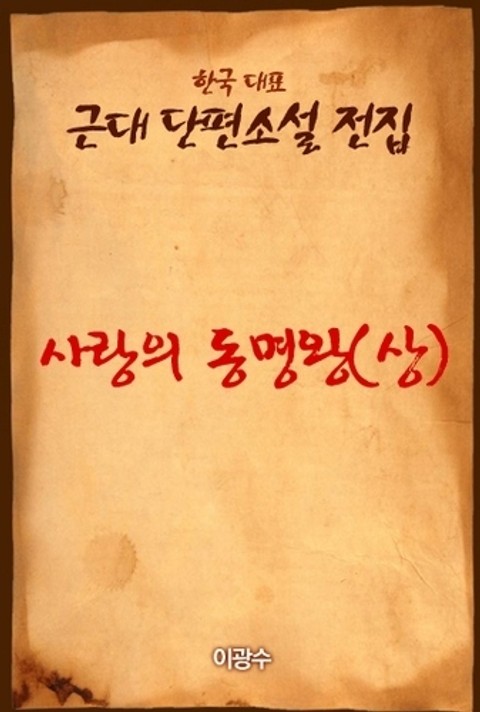 한국 대표
근대 단편소설 전집
사랑의 동명왕(상)
이광수